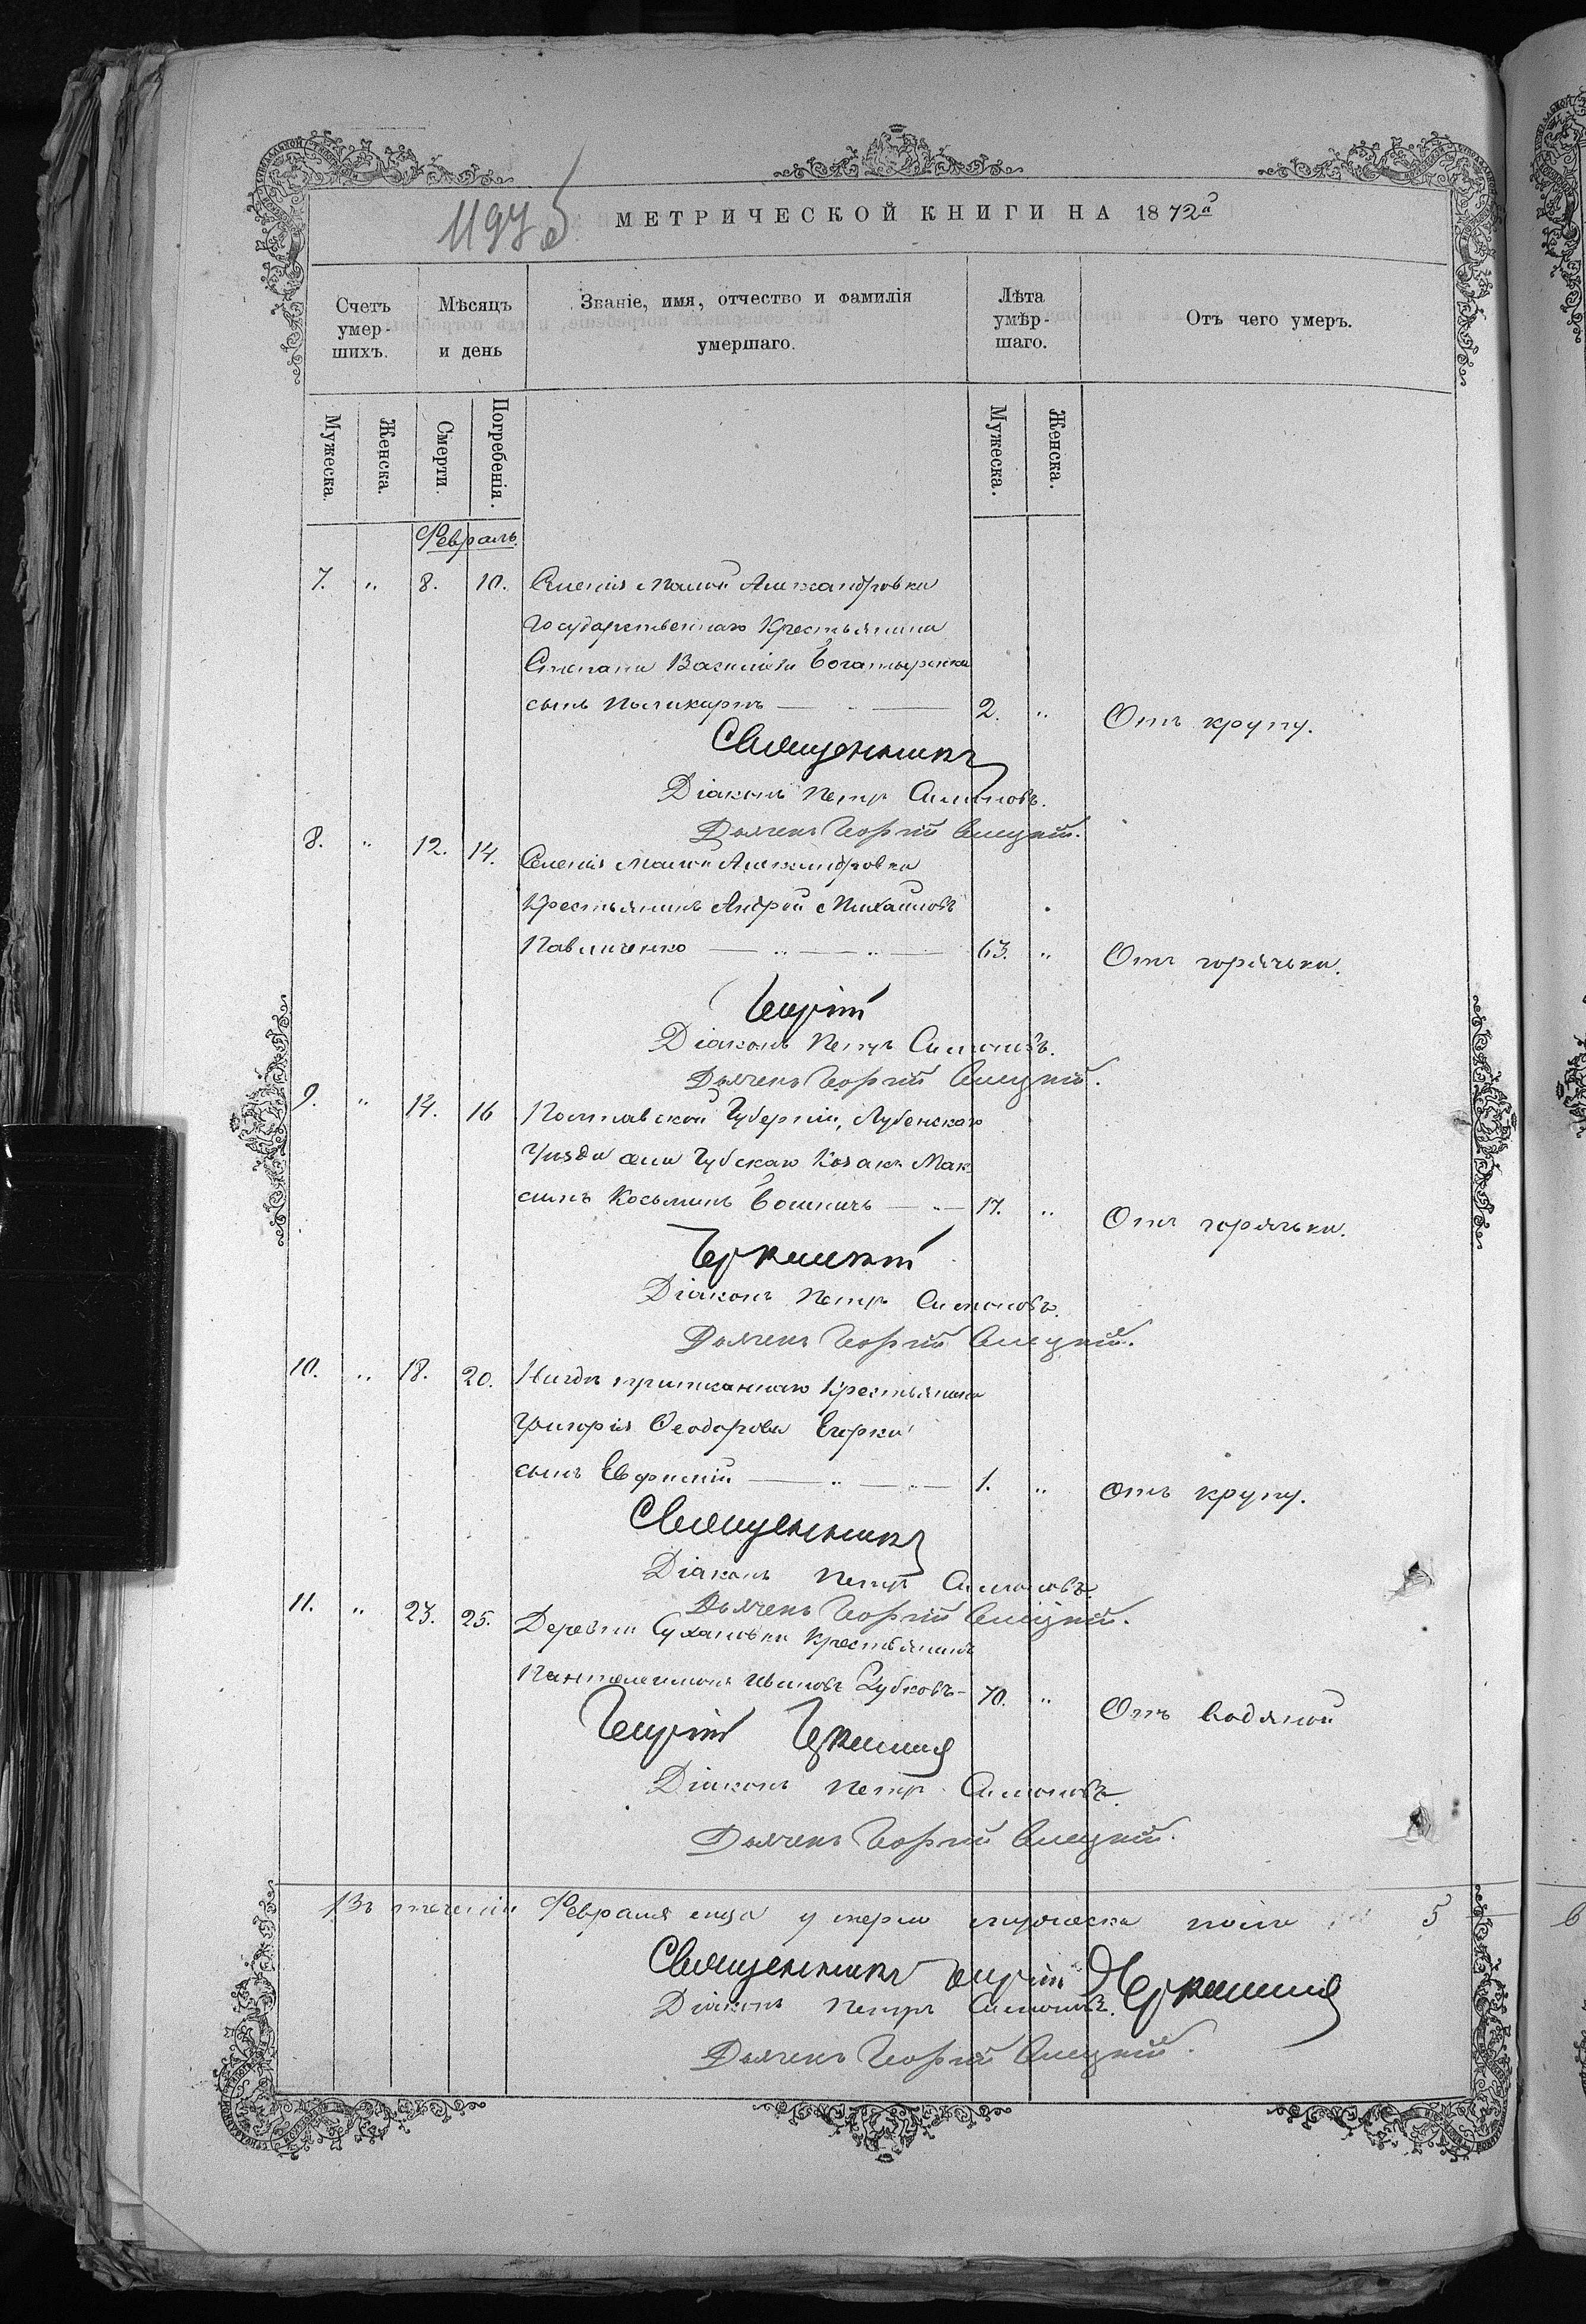 1197 об
МЕТРИЧЕСКОЙ КНИГИ НА 1872й
Счетъ умер-шихъ.
Мѣсяцъ и день
Званіе, имя, отчество и фамилія умершаго.
Лѣта умѣр-шаго.
Отъ чего умеръ.
Мужеска.
Женска.
Смерти.
Погребенія.
Мужеска.
Женска.
Февраль.
7. " 8. 10. Селенія Малой Александровки
Государственнаго Крестьянина
Степана Василіева Богатыренка
сынъ Поликарпъ 2. " Отъ крупу.
Священникъ
Діаконъ Петръ Симоновъ.
Дьячекъ Георгій
8. " 12. 14. Селенія Малой Александровки
Крестьянинъ Андрей Михаиловъ
Павличенко 63. " Отъ горячки.
Георгій
Діаконъ Петръ Симоновъ.
Дьячекъ Георгій
9. " 14. 16 Полтавской Губерніи, Лубенскаго
Уезда села Губскаго Козакъ Мак
симъ Косьминъ 17. " Отъ горячки.
Діаконъ Петръ Симоновъ.
Дьячекъ Георгій
10. " 18. 20. Нигдѣ приписаннаго Крестьянина
Григорія Феодорова
сынъ Евфимій 1. " Отъ крупу.
Священникъ
Діаконъ Петръ Симоновъ.
Дьячекъ Георгій
11. " 23. 25. Деревни Сухановки Крестьянинъ
Пантелеимонъ Ивановъ Зубковъ 70. " Отъ водяной
Георгій
Діаконъ Петръ Симоновъ.
Дьячекъ Георгій
Въ теченіи Февраля м-ца умерло мужеска пола 5
Священникъ Георгій
Діаконъ Петръ Симоновъ.
Дьячекъ Георгій